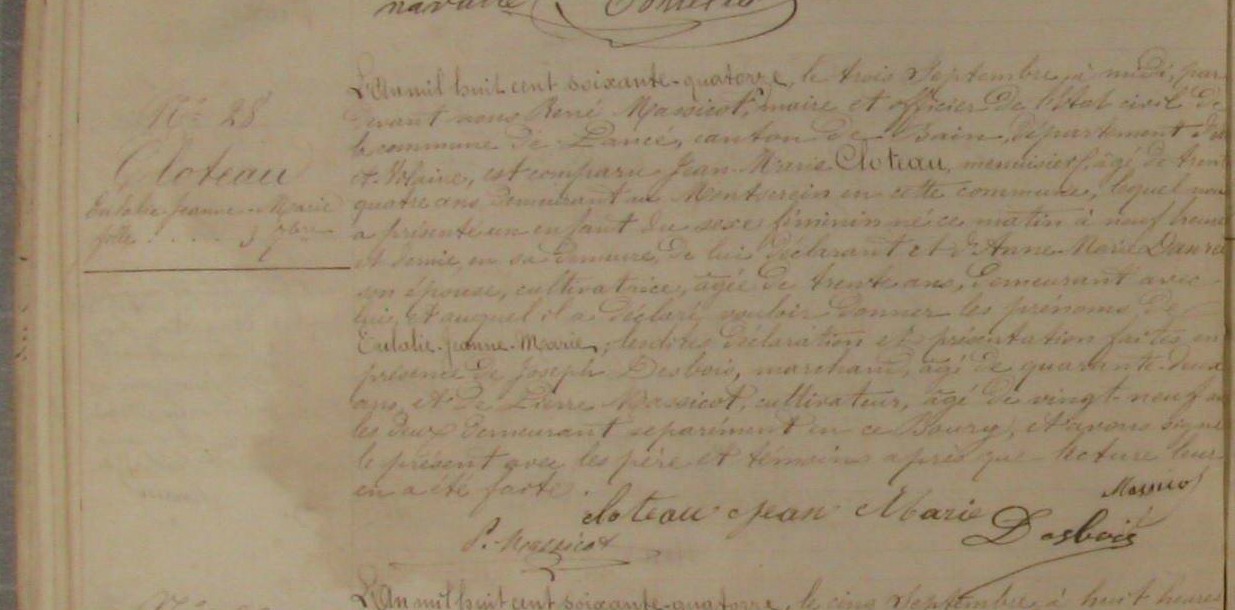 navarre
N° 28
Cloteau
Eulalie-Jeanne-Marie
fille . . . . . 3 7bre
L'An mil huit cent soixante-quatorze, le trois Septembre, à midi, par
devant nous René Massicot, maire et officier de l'état civil de
la commune de Lancé, canton de Bain, département d'
et-Vilaine, est comparu Jean-Marie Cloteau, menuisier, âgé de trente
quatre ans, demeurant en cette commune, lequel nous
a présenté un enfant du sexe féminin né ce matin à neuf heures
et demie, en sa demeure, de lui déclarant et d'Anne-Marie
son épouse, cultivatrice, âgée de trente ans, demeurant avec
lui, et auquel il a déclaré vouloir donner les prénoms de
Eulalie-Jeanne-Marie, lesdites déclaration et présentation faites en
présence de Joseph Desbois, marchand, âgé de quarante-deux
ans, et de Pierre Massicot, cultivateur, âgé de vingt-neuf
les deux demeurant séparément en ce Bourg, et avons signé
le présent avec les père et témoins après que lecture leur
en a été faite.
Massicot
cloteau Jean Marie
P. Massicot
Desbois
L'An mil huit cent soixante-quatorze, le cinq Septembre, à huit heures